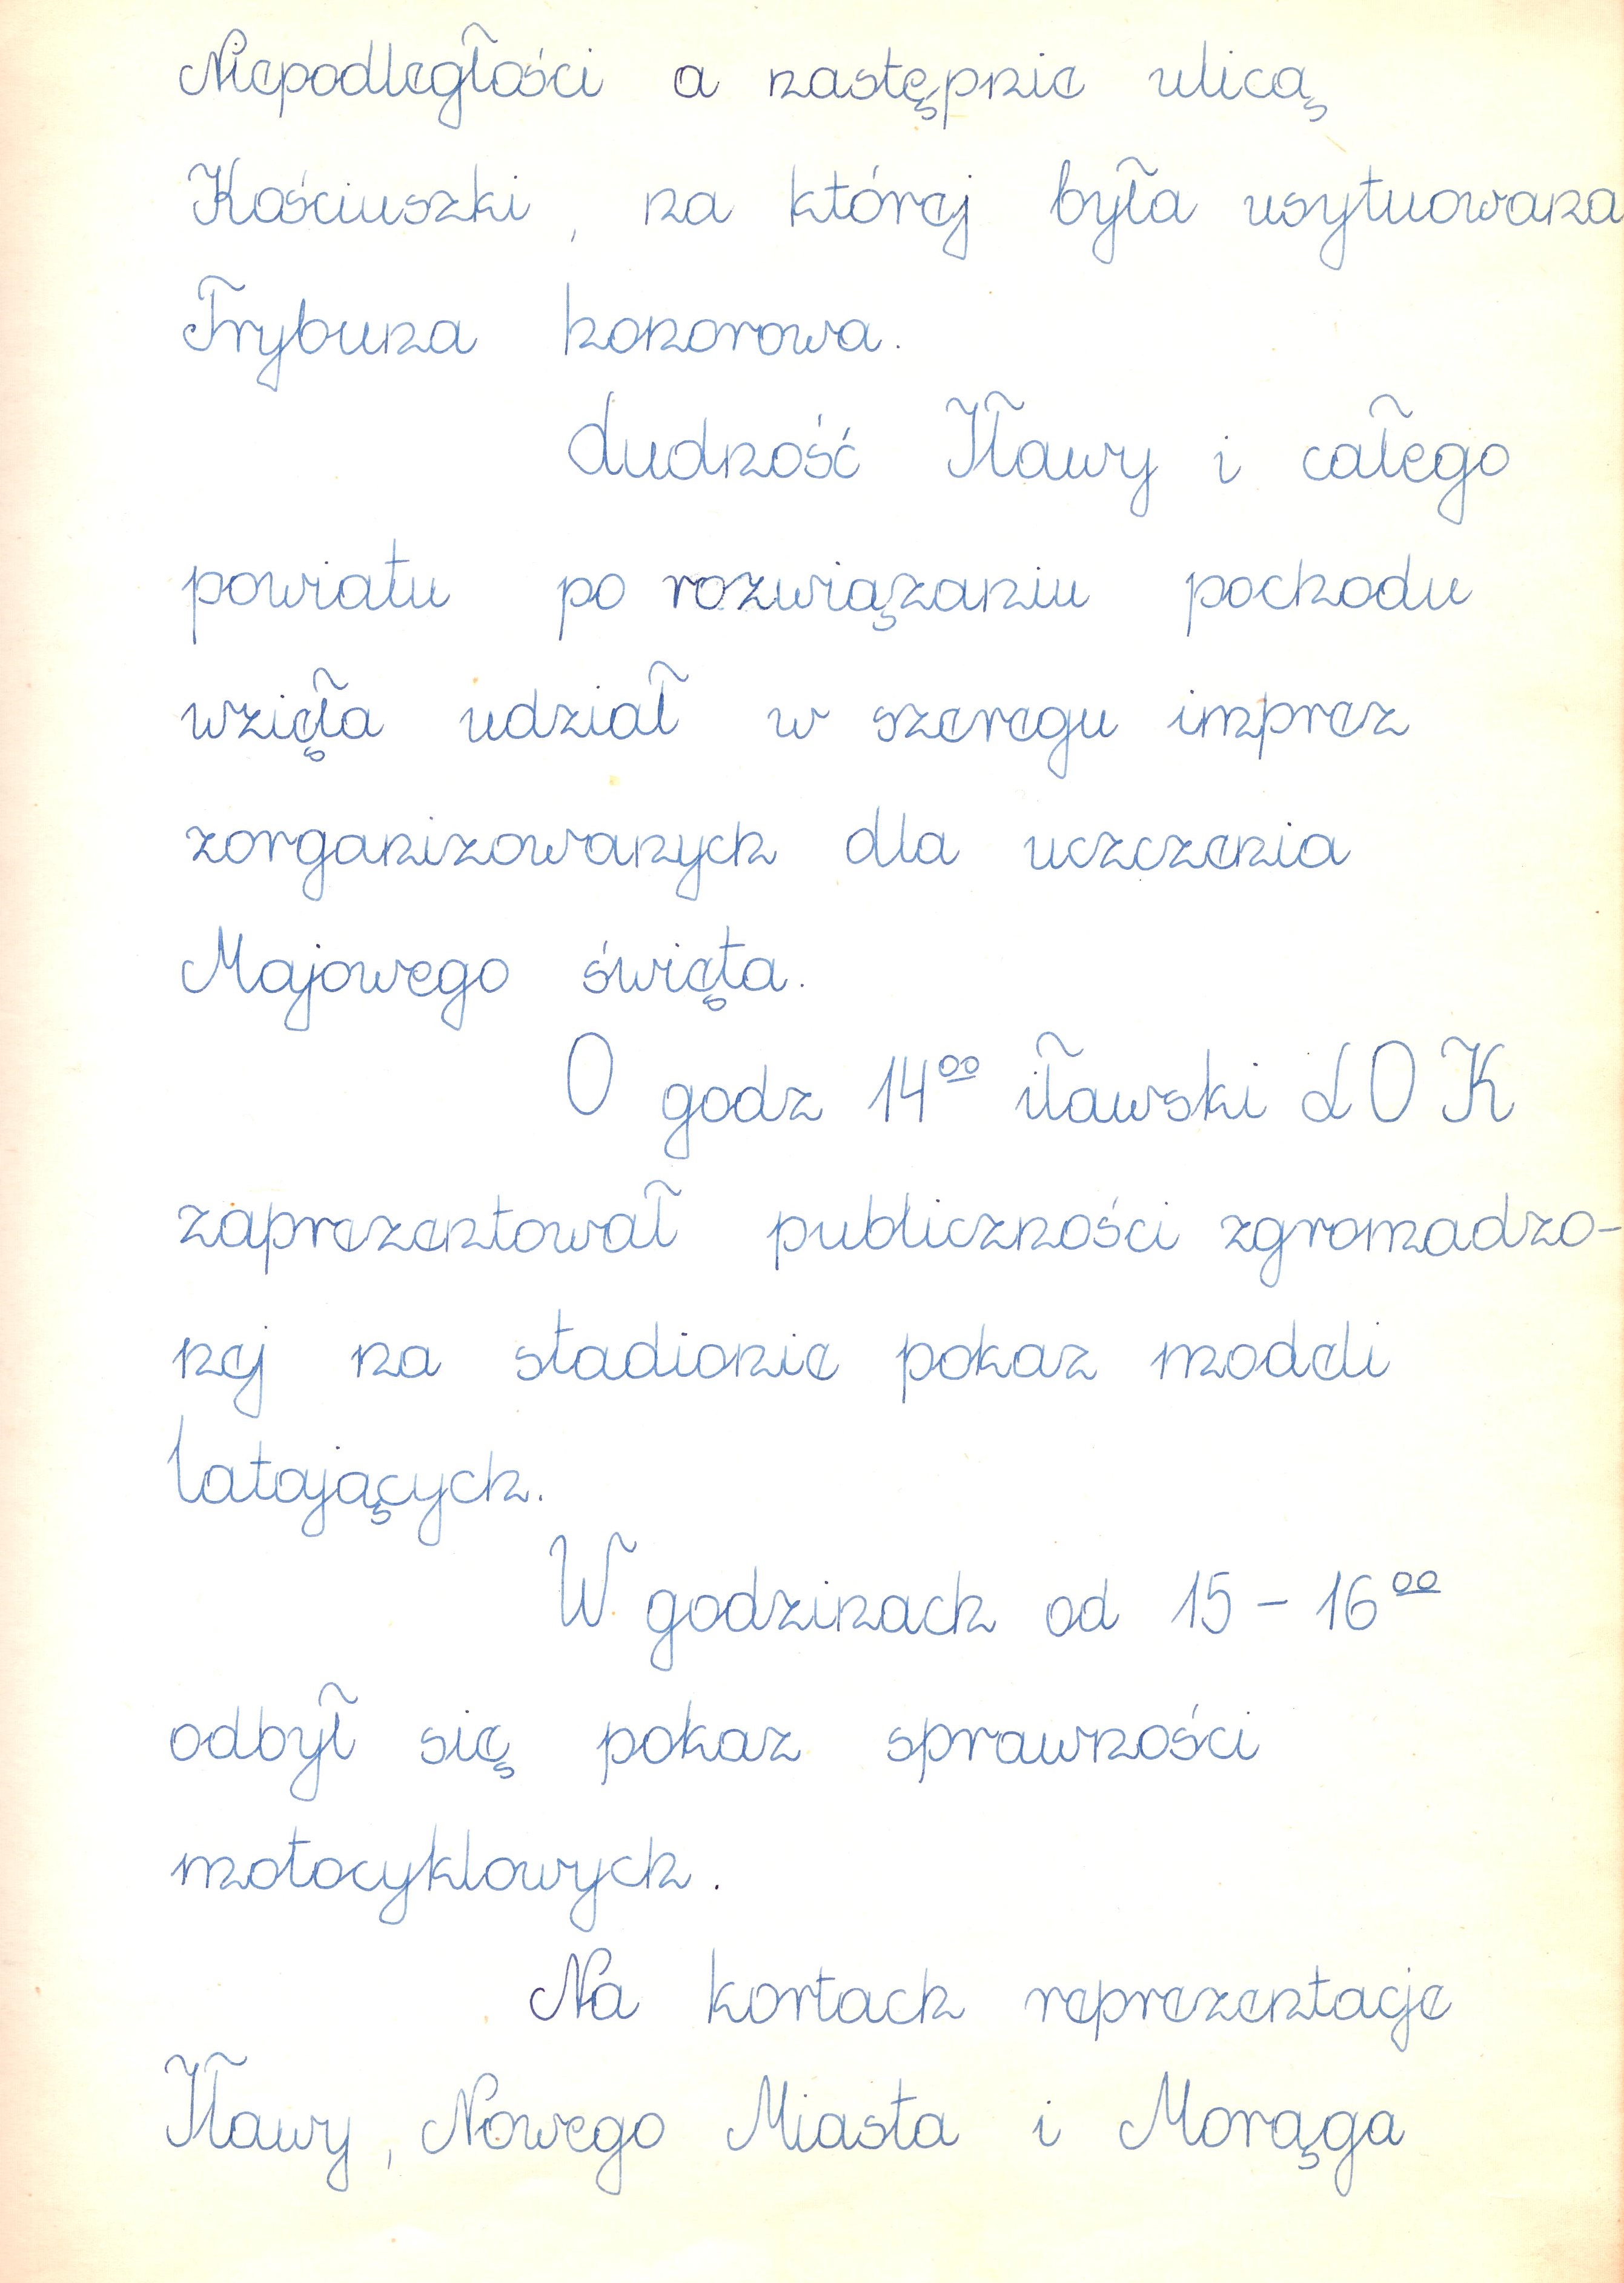 Niepodległości a następnie ulicą
Kościuszki, na której była usytuowana
Trybuna honorowa.
Ludność Iławy i całego
powiatu po rozwiązaniu pochodu
wzięła udział w szeregu imprez
zorganizowanych dla uczczenia
Majowego święta.
O godz 14⁰⁰ iławski LOK
zaprezentował publiczności zgromadzo-
nej na stadionie pokaz modeli
latających.
W godzinach od 15 - 16⁰⁰
odbył się pokaz sprawności
motocyklowych.
Na kortach reprezentacje
Iławy, Nowego Miasta i Morąga